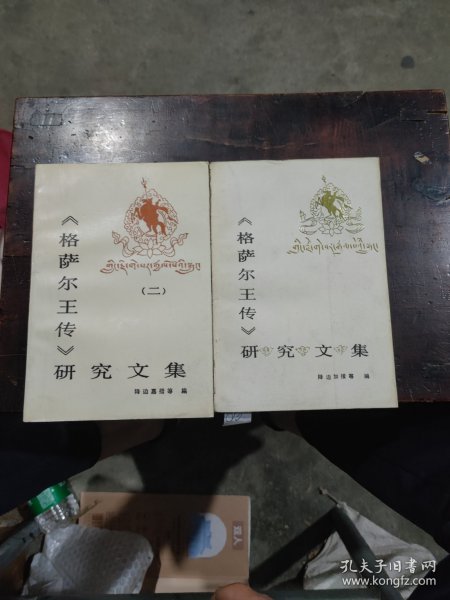 《格萨尔王传》
(二)
研究文集
降边嘉措等 编
《格萨尔王传》
研究文集
降边加措等 编
孔夫子旧书网
www.kongfz.com